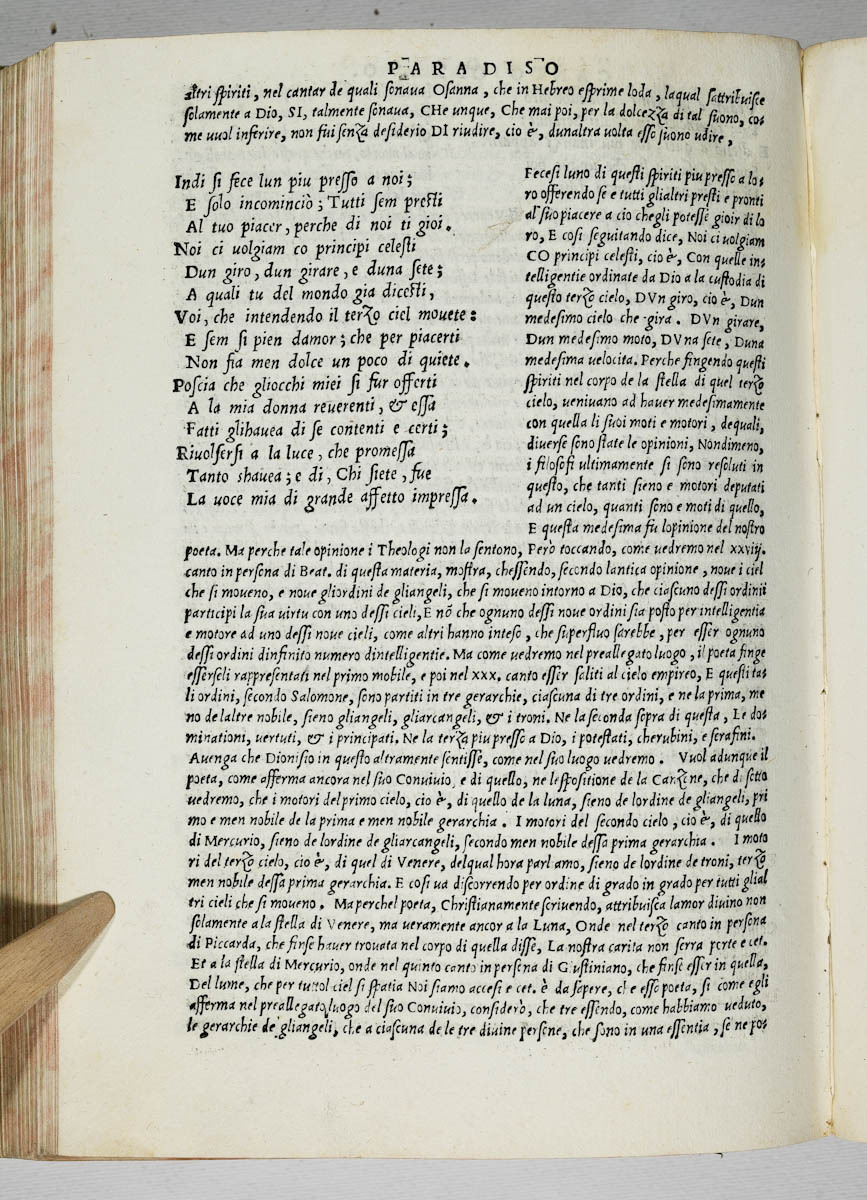 PARADISO
altri spiriti, nel cantar de quali sonaua Osanna, che in Hebreo esprime loda, laqual sattribuisce
solamente a Dio, SI, talmente sonaua, CHe unque, Che mai poi, per la dolcezza di tal suono, co-
me uuol inferire, non fui senza desiderio DI riudire, cio è, dunaltra uolta esso suono udire,
Indi si fece lun piu presso a noi;
E solo incominciò; Tutti sem presti
Al tuo piacer, perche di noi ti gioi.
Noi ci uolgiam co principi celesti
Dun giro, dun girare, e duna sete;
A quali tu del mondo gia dicesti,
Voi, che intendendo il terzo ciel mouete:
E sem si pien damor; che per piacerti
Non fia men dolce un poco di quiete.
Poscia che gliocchi miei si fur offerti
A la mia donna reuerenti, & essa
Fatti glihauea di se contenti e certi;
Riuolsersi a la luce, che promessa
Tanto shauea; e di, Chi siete, fue
La uoce mia di grande affetto impressa.
Fecesi luno di questi spiriti piu presso a lo-
ro offerendo se e tutti glialtri presti e pronti
al suo piacere a cio chegli potesse gioir di lo
ro, E cosi seguitando dice, Noi ci uolgiam
CO principi celesti, cio è, Con quelle in-
telligentie ordinate da Dio a la custodia di
questo terzo cielo, DVn giro, cio è, Dun
medesimo cielo che gira. DVn girare,
Dun medesimo moto, DVna sete, Duna
medesima uelocita. Perche fingendo questi
spiriti nel corpo de la stella di quel terzo
cielo, ueniuano ad hauer medesimamente
con quella li suoi moti e motori, dequali,
diuerse sono state le opinioni, Nondimeno,
i filosofi ultimamente si sono resoluti in
questo, che tanti sieno e motori deputati
ad un cielo, quanti sono e moti di quello,
E questa medesima fu lopinione del nostro
poeta. Ma perche tale opinione i Theologi non la sentono, Però toccando, come uedremo nel xxviij.
canto in persona di Beat. di questa materia, mostra, chessendo, secondo lantica opinione, noue i ciel
che si moueno, e noue gliordini de gliangeli, che si moueno intorno a Dio, che ciascuno dessi ordinii
participi la sua uirtu con uno dessi cieli, E nõ che ognuno dessi noue ordini sia posto per intelligentia
e motore ad uno dessi noue cieli, come altri hanno inteso, che superfluo sarebbe, per esser ognuno
dessi ordini dinfinito numero dintelligentie. Ma come uedremo nel preallegato luogo, il poeta finge
esserseli rappresentati nel primo mobile, e poi nel xxx. canto esser saliti al cielo empireo, E questi ta-
li ordini, secondo Salomone, sono partiti in tre gerarchie, ciascuna di tre ordini, e ne la prima, me
no de laltre nobile, sieno gliangeli, gliarcangeli, & i troni. Ne la seconda sopra di questa, Le do-
minationi, uertuti, & i principati. Ne la terza piu presso a Dio, i potestati, cherubini, e serafini.
Auenga che Dionisio in questo altramente sentisse, come nel suo luogo uedremo. Vuol adunque il
poeta, come afferma ancora nel suo Conuiuio, e di quello, ne lespositione de la Canzone, che di sotto
uedremo, che i motori del primo cielo, cio è, di quello de la luna, sieno de lordine de gliangeli, pri
mo e men nobile de la prima e men nobile gerarchia. I motori del secondo cielo, cio è, di quello
di Mercurio, sieno de lordine de gliarcangeli, secondo men nobile dessa prima gerarchia. I moto
ri del terzo cielo, cio è, di quel di Venere, delqual hora parlamo, sieno de lordine de troni, terzo
men nobile dessa prima gerarchia. E cosi ua discorrendo per ordine di grado in grado per tutti glial
tri cieli che si moueno. Ma perchel poeta, Christianamente scriuendo, attribuisca lamor diuino non
solamente a la stella di Venere, ma ueramente ancor a la Luna, Onde nel terzo canto in persona
di Piccarda, che finse hauer trouata nel corpo di quella disse, La nostra carita non serra porte e cet.
Et a la stella di Mercurio, onde nel quinto canto in persona di Giustiniano, che finse esser in quella,
Del lume, che per tuttol ciel si spatia Noi siamo accesi e cet. è da sapere, che esso poeta, si come egli
afferma nel preallegato luogo del suo Conuiuio, considerò, che tre essendo, come habbiamo ueduto,
le gerarchie de gliangeli, che a ciascuna de le tre diuine persone, che sono in una essentia, se ne po-